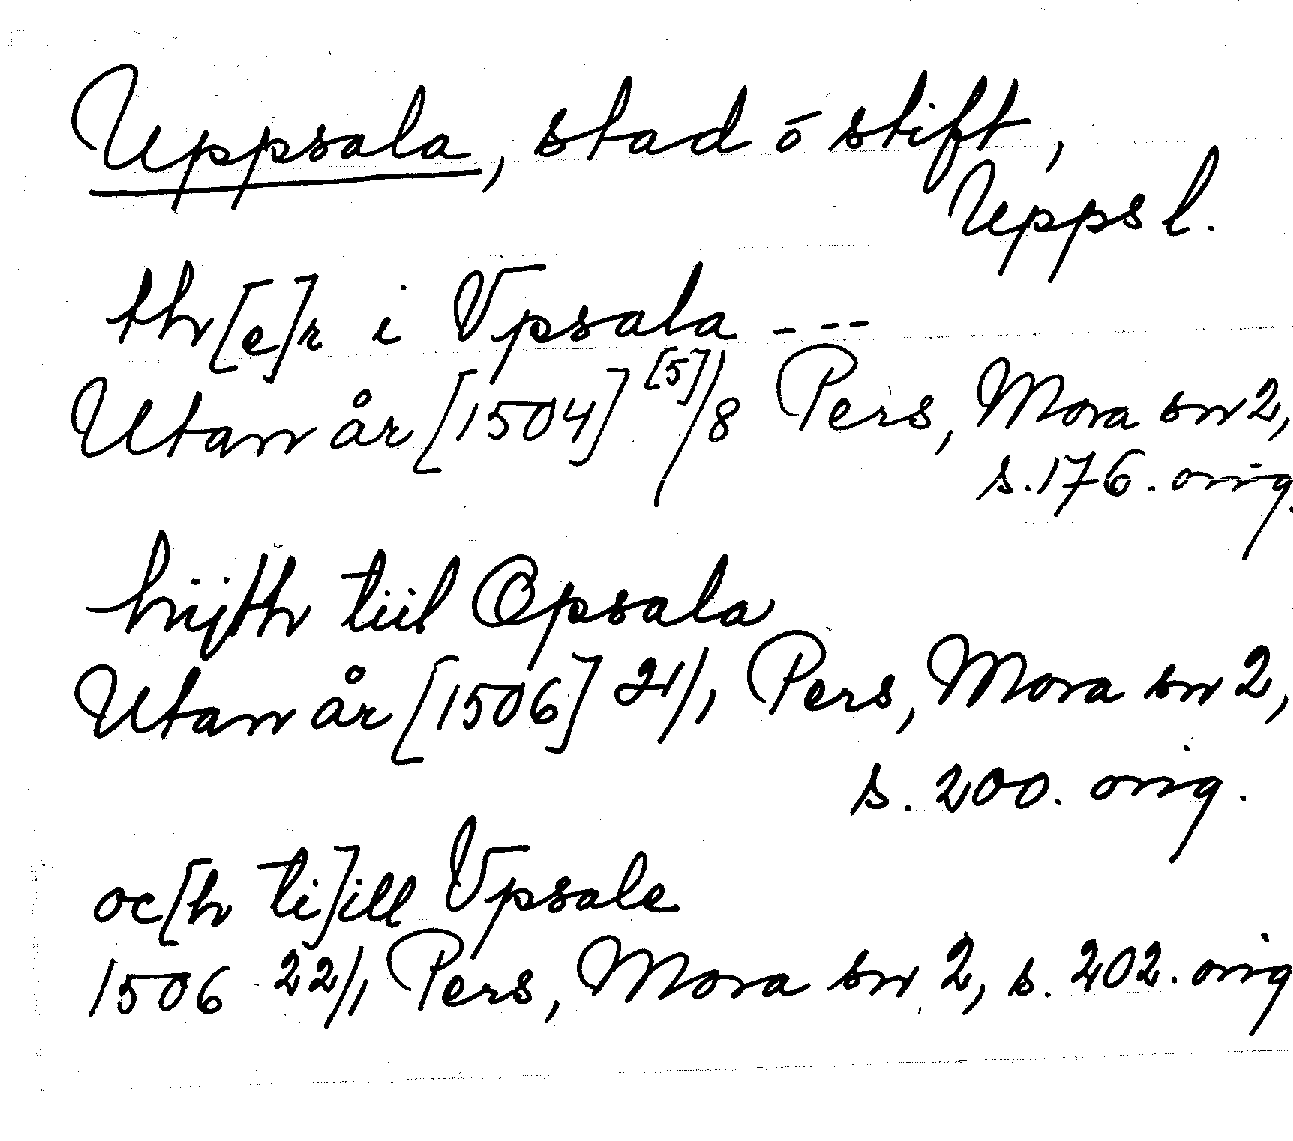 Uppsala, stad o stift,
Upps l.
thr[e]r i Vpsala ---
Utan år [1504] [5]/8 Pers, Mora sn 2,
s. 176. orig.
hijth tiil Opsala
Utan år [1506] 21/1 Pers, Mora sn 2,
s. 200. orig.
oc[h ti]ill Vpsale
1506 22/1 Pers, Mora sn 2, s. 202. orig